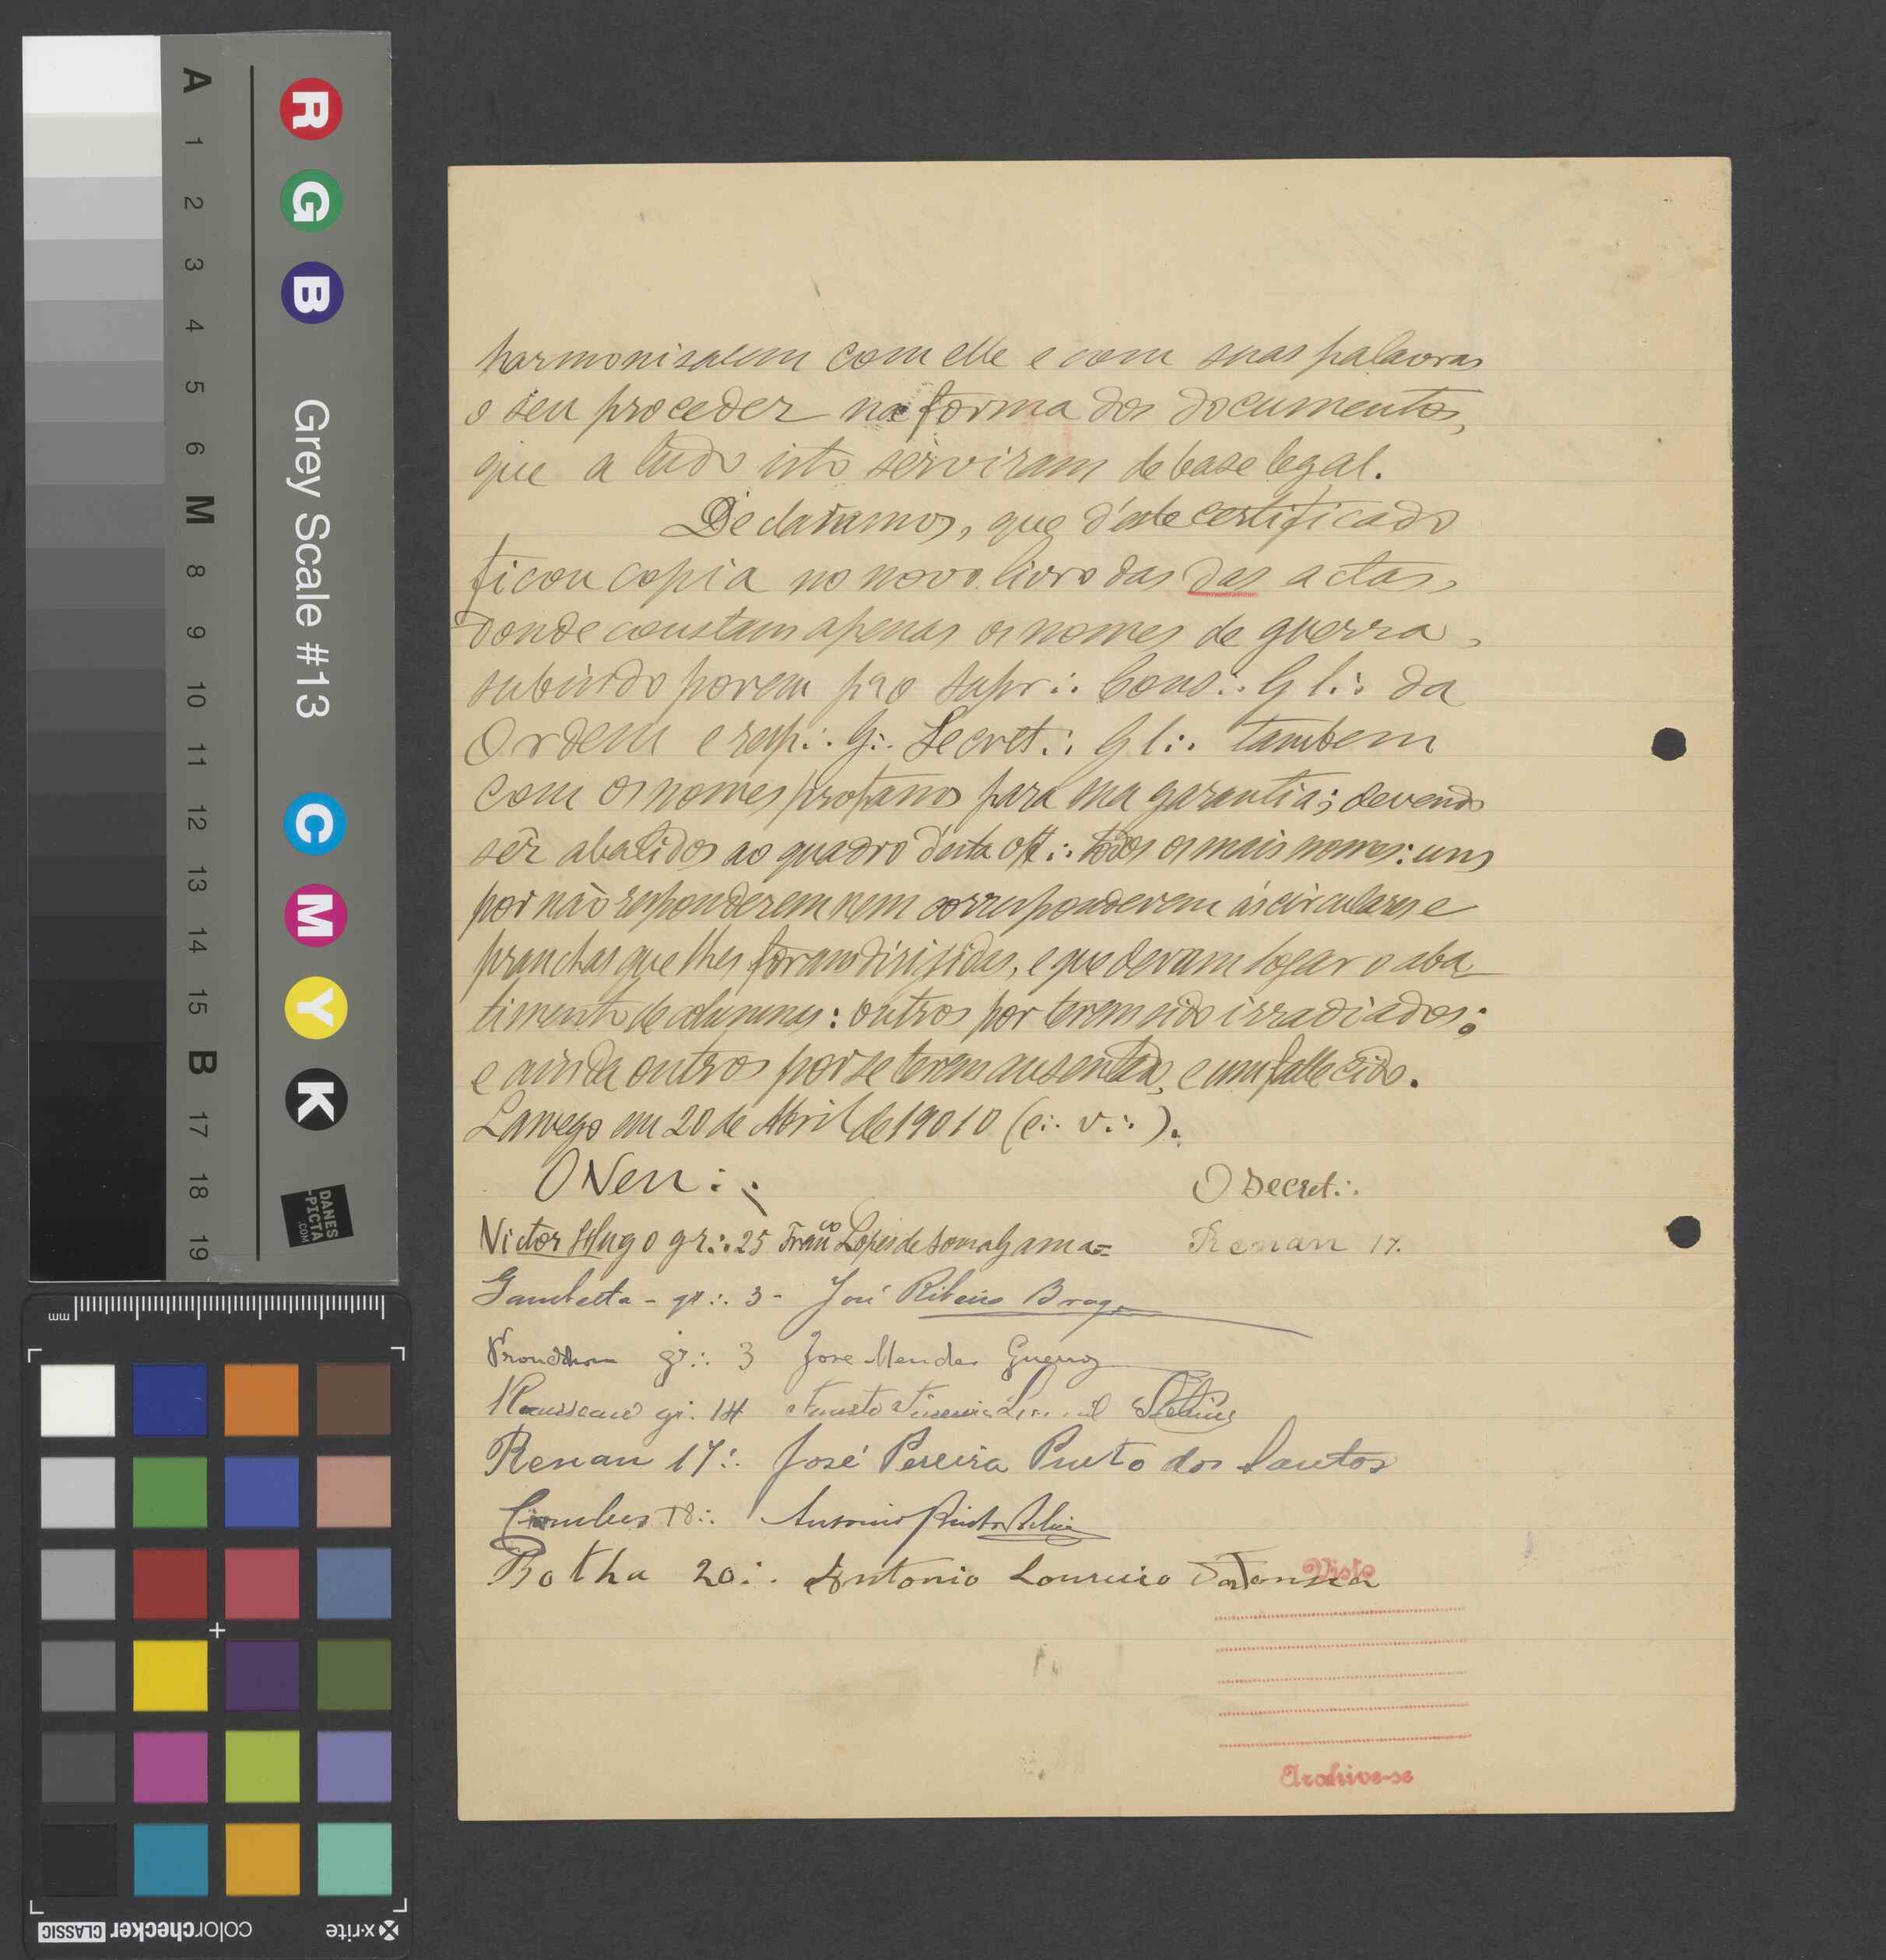 harmonisarem com elle e com suas palavras
o seu proceder na forma dos documentos,
que a tudo isto serviram de base legal.
Declaramos, que d'este certificado
ficou copia no novo livro das das actas,
donde constam apenas os nomes de guerra,
subindo porem p.ª o Supr∴ Cons∴ G l∴ da
Ordem e resp∴ G∴ Secret∴ G l∴ tambem
com os nomes profanos para sua garantia; devendo
sêr abatidos ao quadro d'esta off∴ todos os mais nomes: uns
por não responderem nem corresponderem ás circulares e
pranchas que lhes foram dirijidas, e que deram logar o aba
timento de columnas: outros por terem sido irradiados;
e ainda outros por se terem ausentado, e um fallecido.
Lamego em 20 de Abril de 19010 (e∴ v∴).
O Ven∴
O Secret∴
Victor Hugo gr∴ 25 Fran.co Lopes de Souza Gama=
Renan 17.
Gambetta - gr∴ 3 - José Ribeiro Braga
Proudhon gr∴ 3 Jose Mendes Guerra
Rousseau gr. 14 Fausto
Renan 17∴ José Pereira Pinto dos Santos
18∴ Antonio Pinto
Botha 20∴ Antonio Loureiro
Visto
Archive-se
A 1 2 3 4 5 6 M 8 9 10 11 12 13 14 15 B 17 18 19
R G B Grey Scale #13 C M Y K
DANES
-PICTA
.COM
mm
x-rite colorchecker CLASSIC